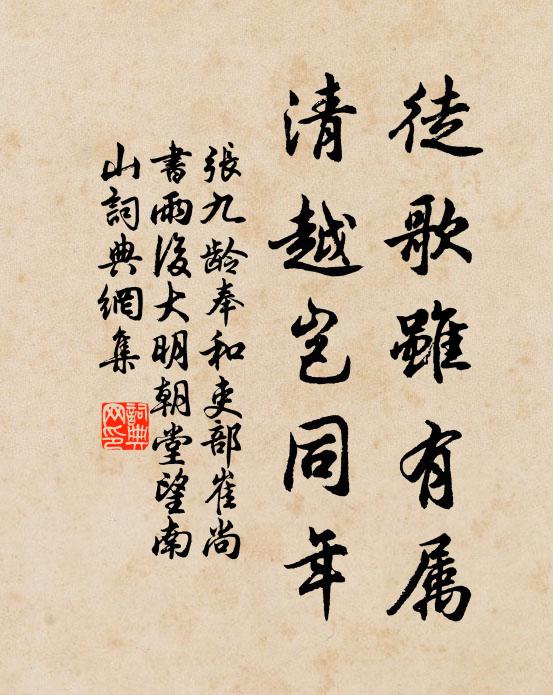 徒歌雖有属
清越岂同年
張九龄奉和吏部崔尚
書雨後大明朝堂望南
山詞典網集
詞典网印